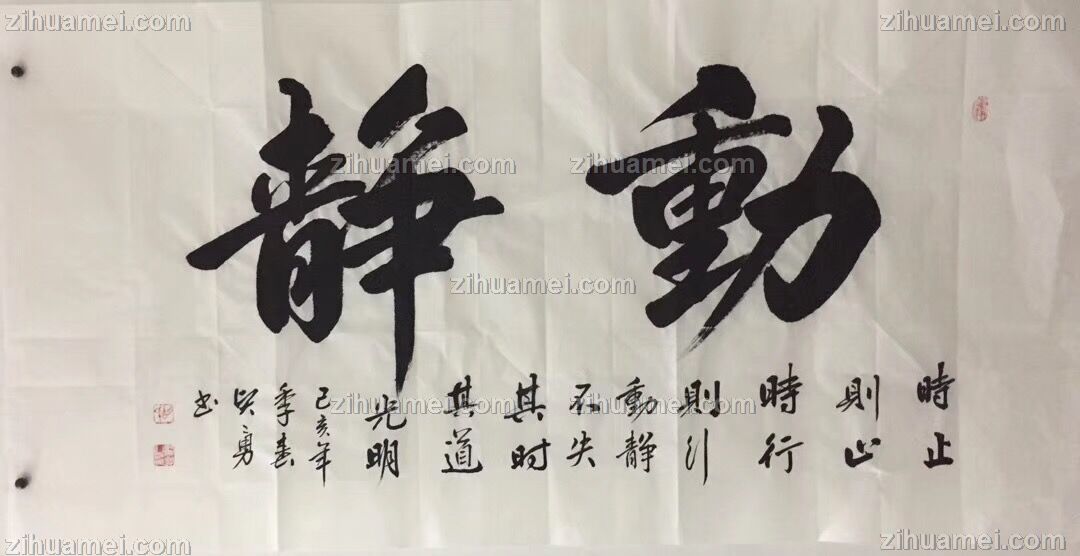 動靜
時止
則止
時行
則行
動静
不失
其时
其道
光明
己亥年
季春
勇
书
zihuamei.com
zihuamei.com
zihuamei.com
zihuamei.com
zihuamei.com
zihuamei.com
zihuamei.com
zihuamei.com
zihuamei.com
zihuamei.com
zihuamei.com
zihuamei.com